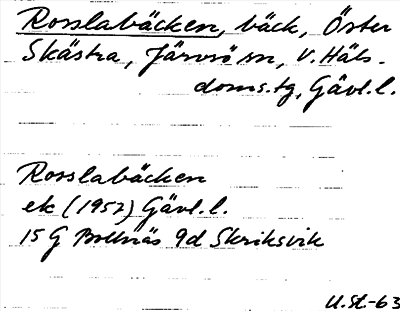 Rosslabäcken, bäck, Öster
Skästra, Järvsö sn, V. Häls.
doms.tg, Gävl.l.
Rosslabäcken
ek (1957) Gävl.l.
15 G Bollnäs 9d Skriksvik
U.St-63